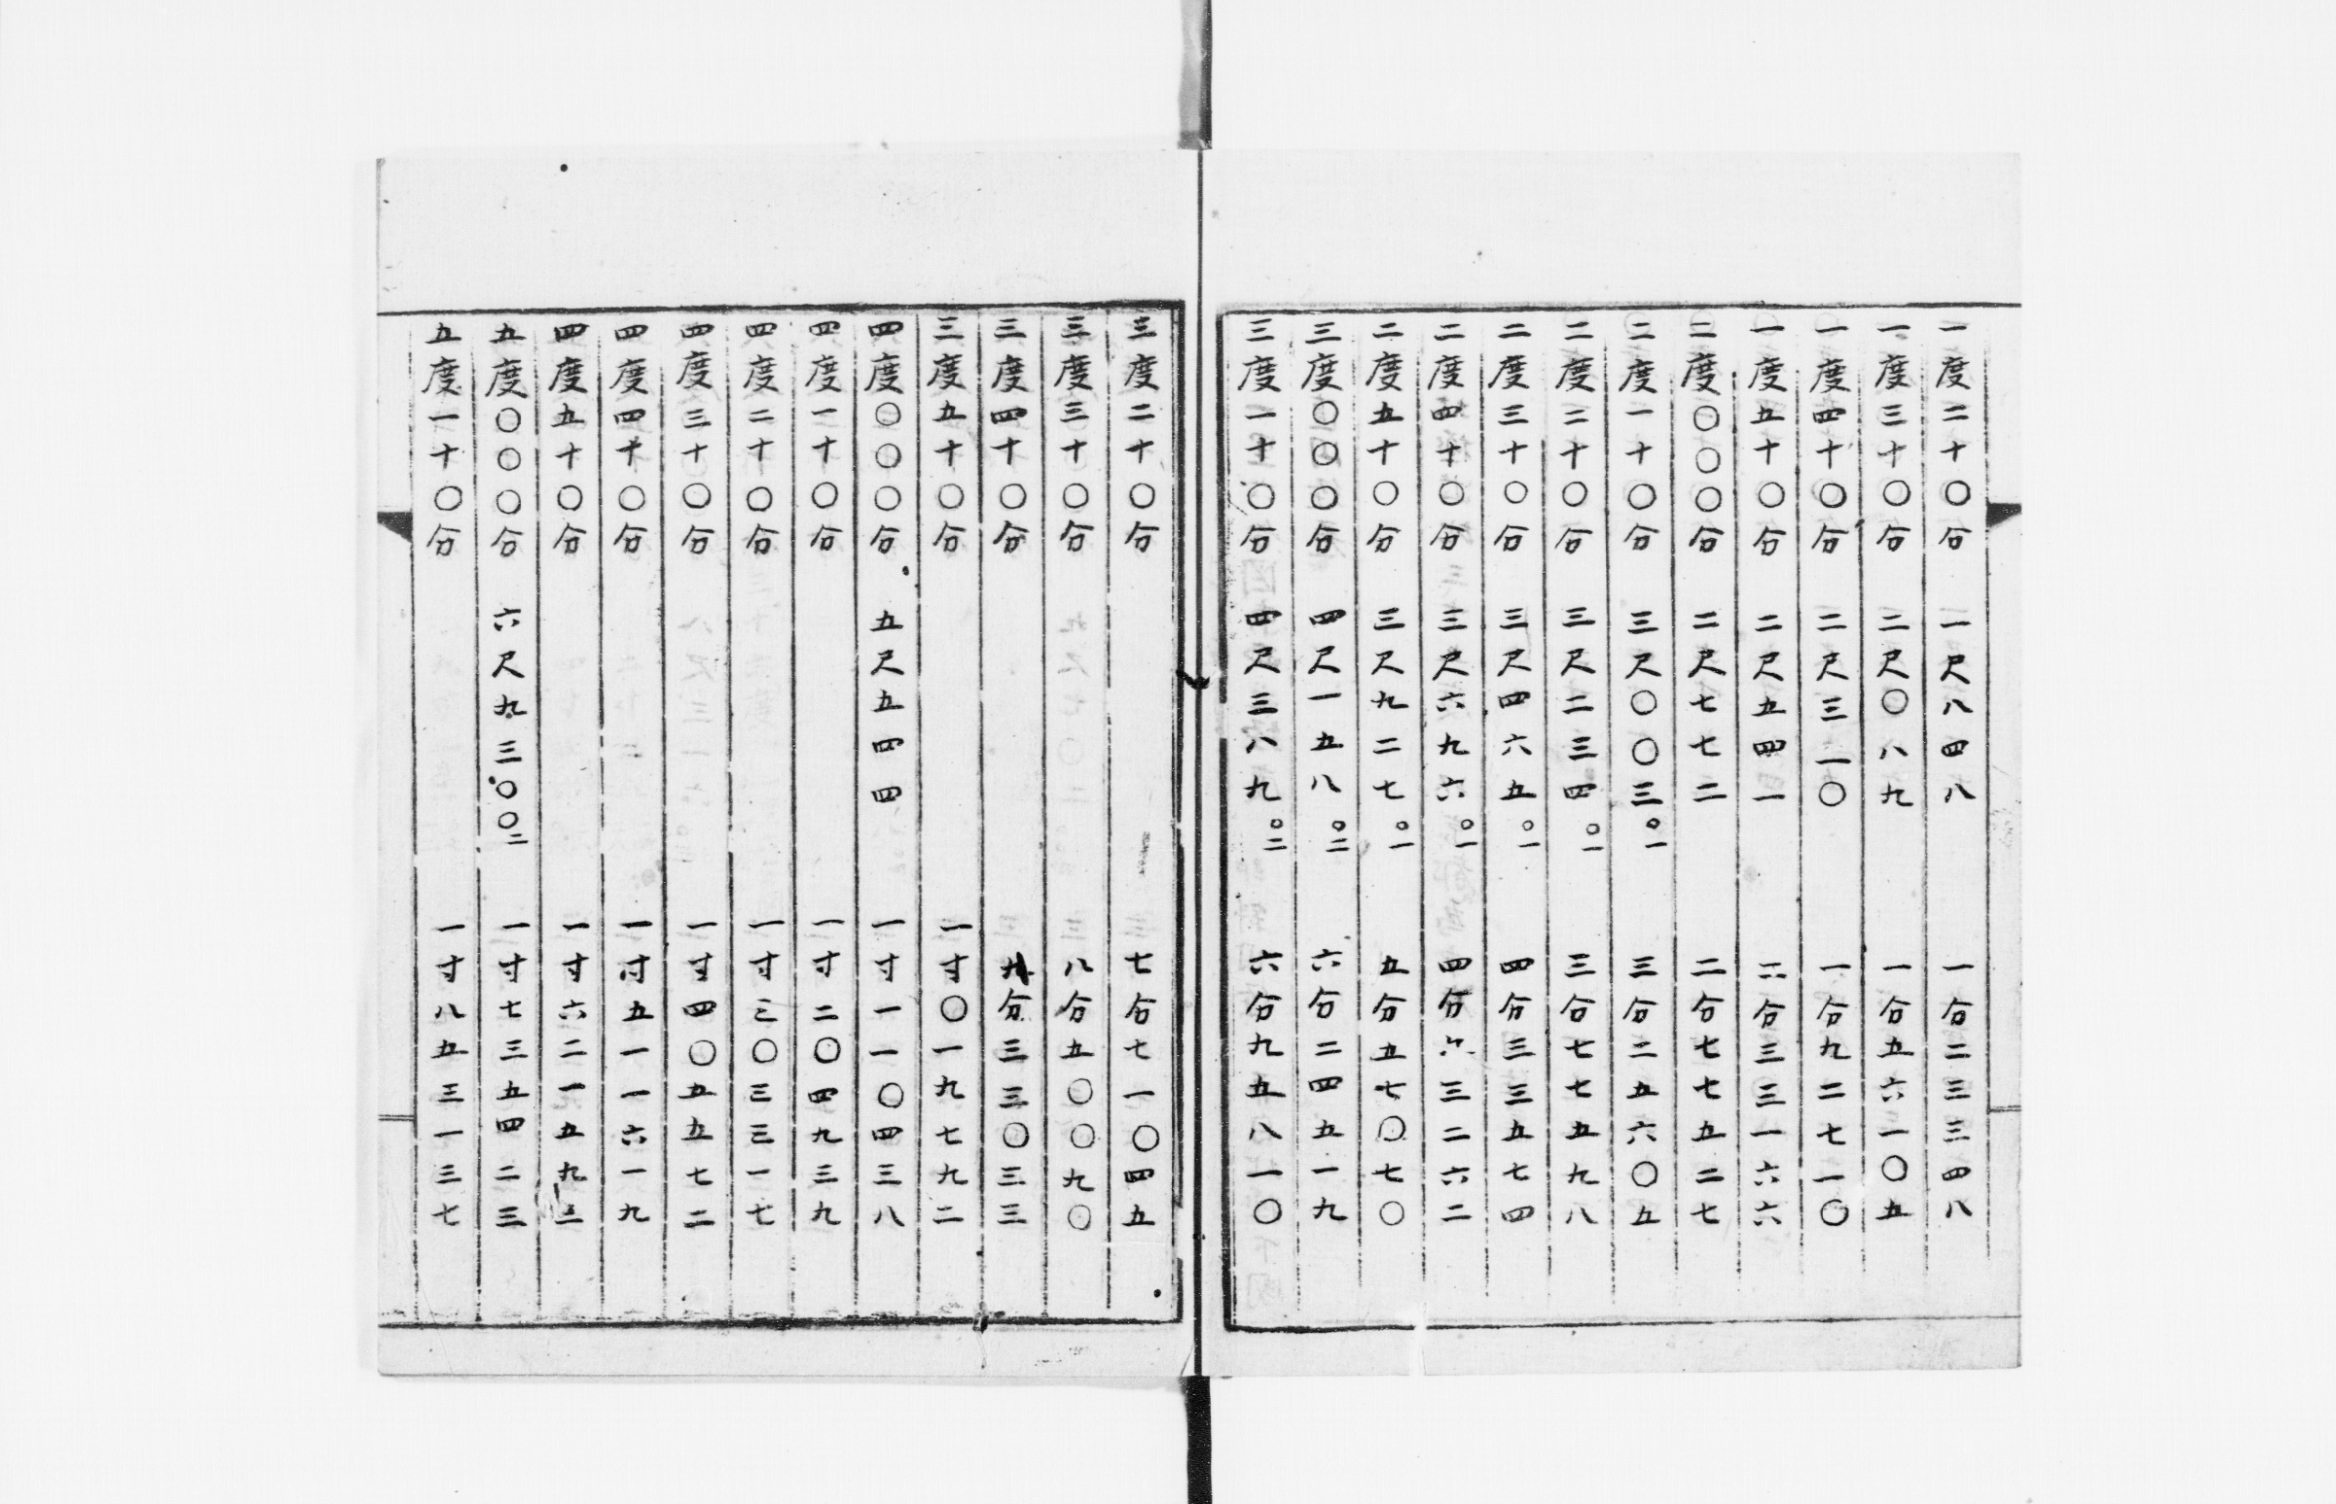 一度二十〇分　一尺八四八　一分二三三四八
一度三十〇分　二尺〇八九　一分五六一〇五
一度四十〇分　二尺三一〇　一分九二七一〇
一度五十〇分　二尺五四一　二分三三一六六
二度〇〇〇分　二尺七七二　二分七七五二七
二度一十〇分　三尺〇〇三〇一　三分二五六〇五
二度二十〇分　三尺二三四〇一　三分七七五九八
二度三十〇分　三尺四六五〇一　四分三三五七四
二度四十〇分　三尺六九六〇一　四分六三二六二
二度五十〇分　三尺九二七〇一　五分五七〇七〇
三度〇〇〇分　四尺一五八〇二　六分二四五一九
三度一十〇分　四尺三八九〇二　六分九五八一〇
三度二十〇分　七分七一〇四五
三度三十〇分　八分五〇〇九〇
三度四十〇分　九分三三〇三三
三度五十〇分　一寸〇一九七九二
四度〇〇〇分　五尺五四四　一寸一一〇四三八
四度一十〇分　一寸二〇四九三九
四度二十〇分　一寸三〇三三一七
四度三十〇分　一寸四〇五五七二
四度四十〇分　一寸五一一六一九
四度五十〇分　一寸六二一五九三
五度〇〇〇分　六尺九三〇〇二　一寸七三五四二三
五度一十〇分　一寸八五三一三七